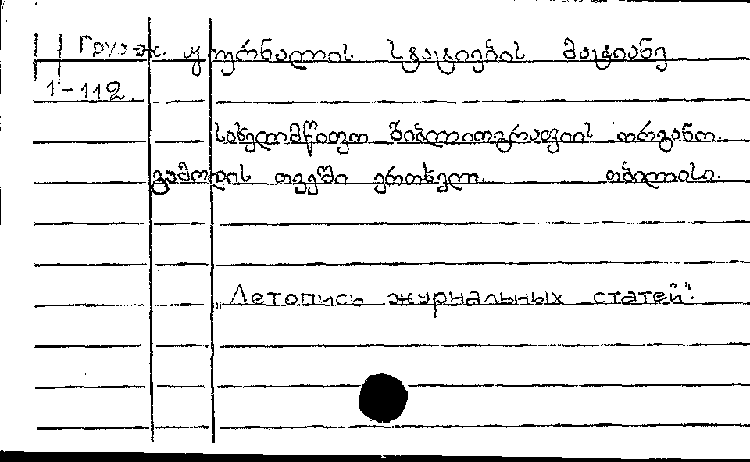 Груз ж. ჟურნალის სტატიების მატიანე
1-112
სახელმწიფო ბიბლიოგრაფიის ორგანო.
გამოდის თვეში ერთხელ. თბილისი.
„Летопись журнальных статей".